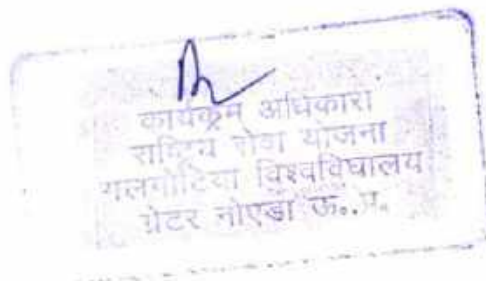 कार्यक्रम अधिकारी
राष्ट्रिय सेवा योजना
गलगोटिया विश्वविद्यालय
ग्रेटर नोएडा ऊ. प्र.